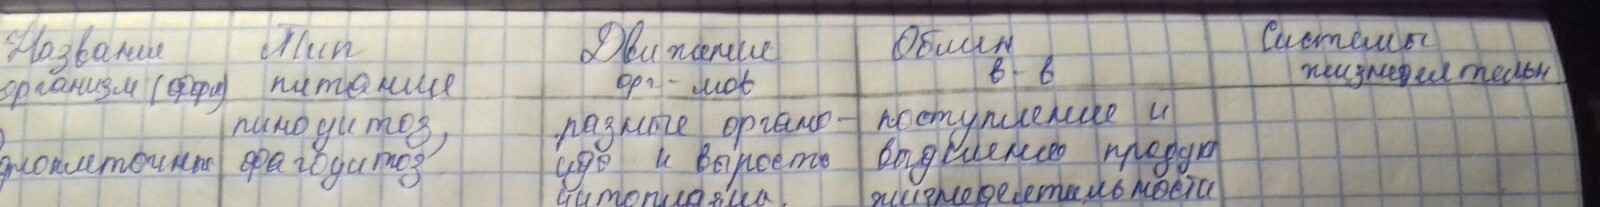 Название Тип Движение Обмен Системы
организм питание орг-мов в-в жизнедеятельн
пиноцитоз, разные органо- поступление и
фагоцитоз и выросты выделение продук
цитоплазма. жизнедеятельности